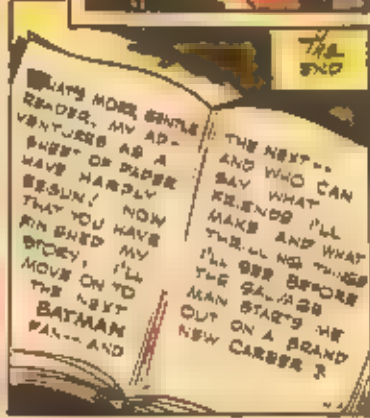 THE
END
WHAT'S MORE, GENTLE
READER, MY AD-
VENTURES AS A
SHEET OF PAPER
HAVE HARDLY
BEGUN! NOW
THAT YOU HAVE
FINISHED MY
STORY, I'LL
MOVE ON TO
THE NEXT
BATMAN
FAN-- AND
THE NEXT--
AND WHO CAN
SAY WHAT
FRIENDS I'LL
MAKE AND WHAT
THRILLING THINGS
I'LL SEE BEFORE
THE SALVAGE
MAN STARTS ME
OUT ON A BRAND
NEW CAREER?